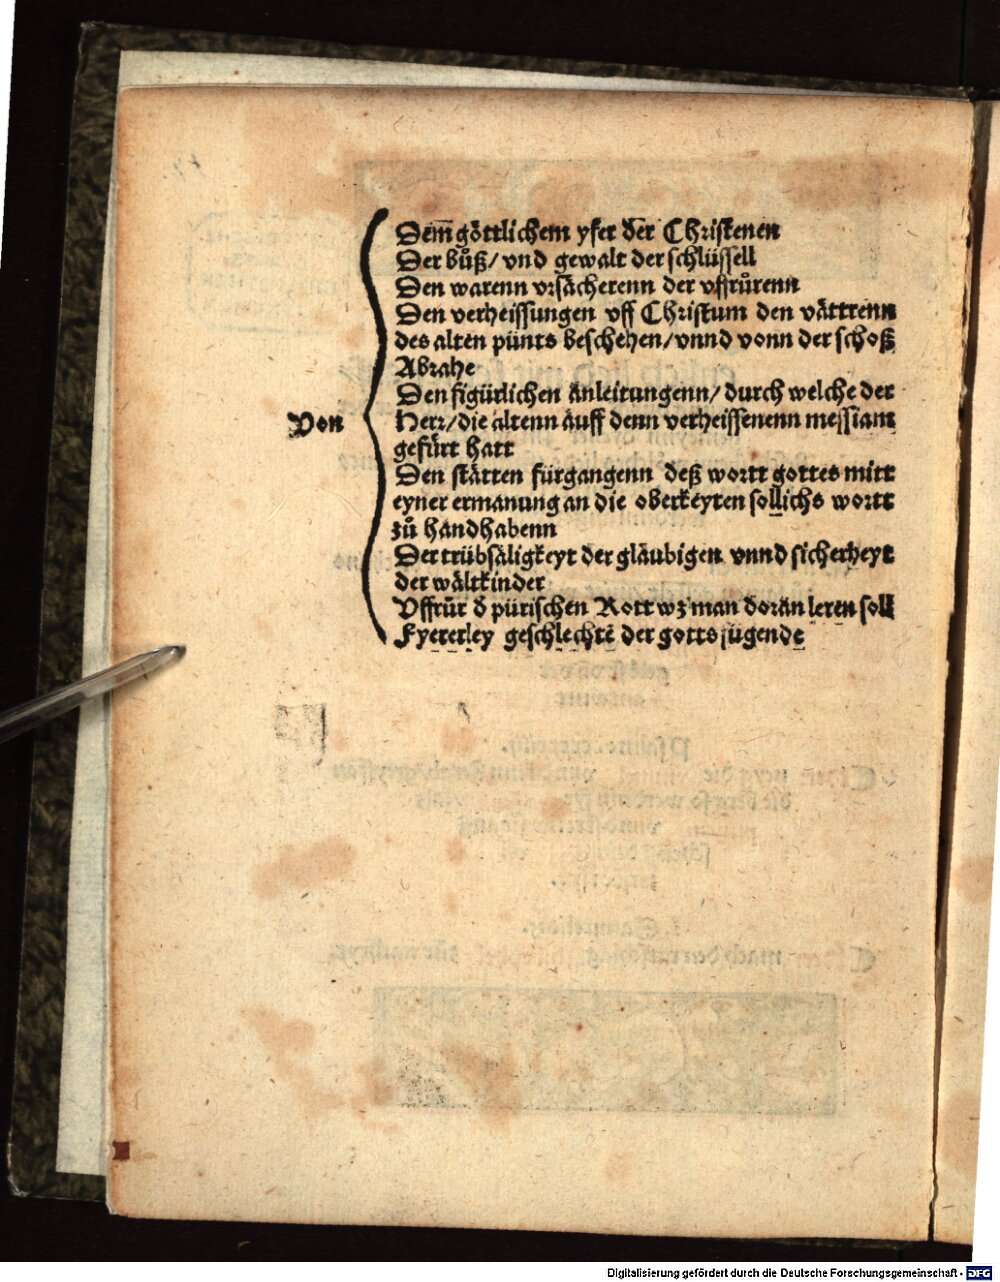 Dem̃ göttlichem yfer der Christenen
Der bůß/ vnd gewalt der schlüssell
Den warenn vrsächerenn der vffrůrenn
Den verheissungen vff Christum den vättrenn
des alten pünts beschehen/ vnnd vonn der schoß
Abrahe
Den figürlichen änleitungenn/ durch welche der
Von
Herr/ die altenn äuff denn verheissenenn messiam
gefürt hatt
Den stätten fürgangenn deß wortt gottes mitt
eyner ermanung an die oberkeyten sollichs wortt
zů händhabenn
Der trübsäligkeyt der gläubigen vnnd sicherheyt
der wältkinder
Vffrůr d̶ pürischen Rott wz man dorän leren soll
Fyererley geschlechtē der gotts jügende
Digitalisierung gefördert durch die Deutsche Forschungsgemeinschaft - DFG